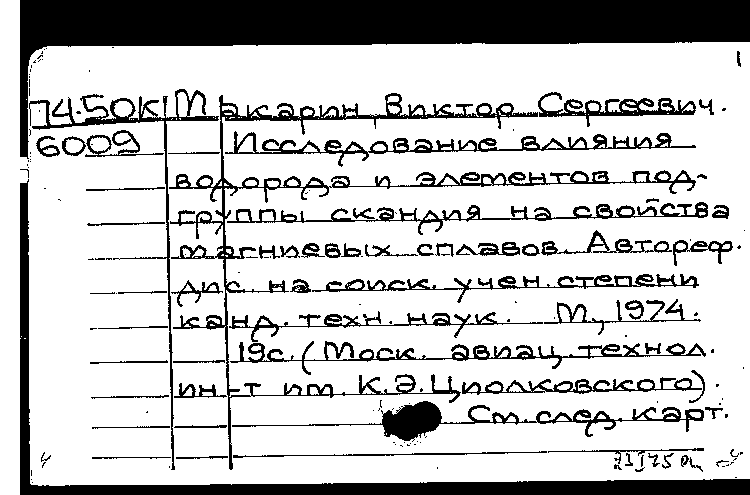 1
74-50К Макарин Виктор Сергеевич.
6009 Исследование влияния
водорода и элементов под-
группы скандия на свойства
магниевых сплавов. Автореф.
дис. на соиск. учен. степени
канд. техн. наук. М., 1974.
19с. (Моск. авиац. технол.
ин-т им. К.Э.Циолковского).
См. след. карт.